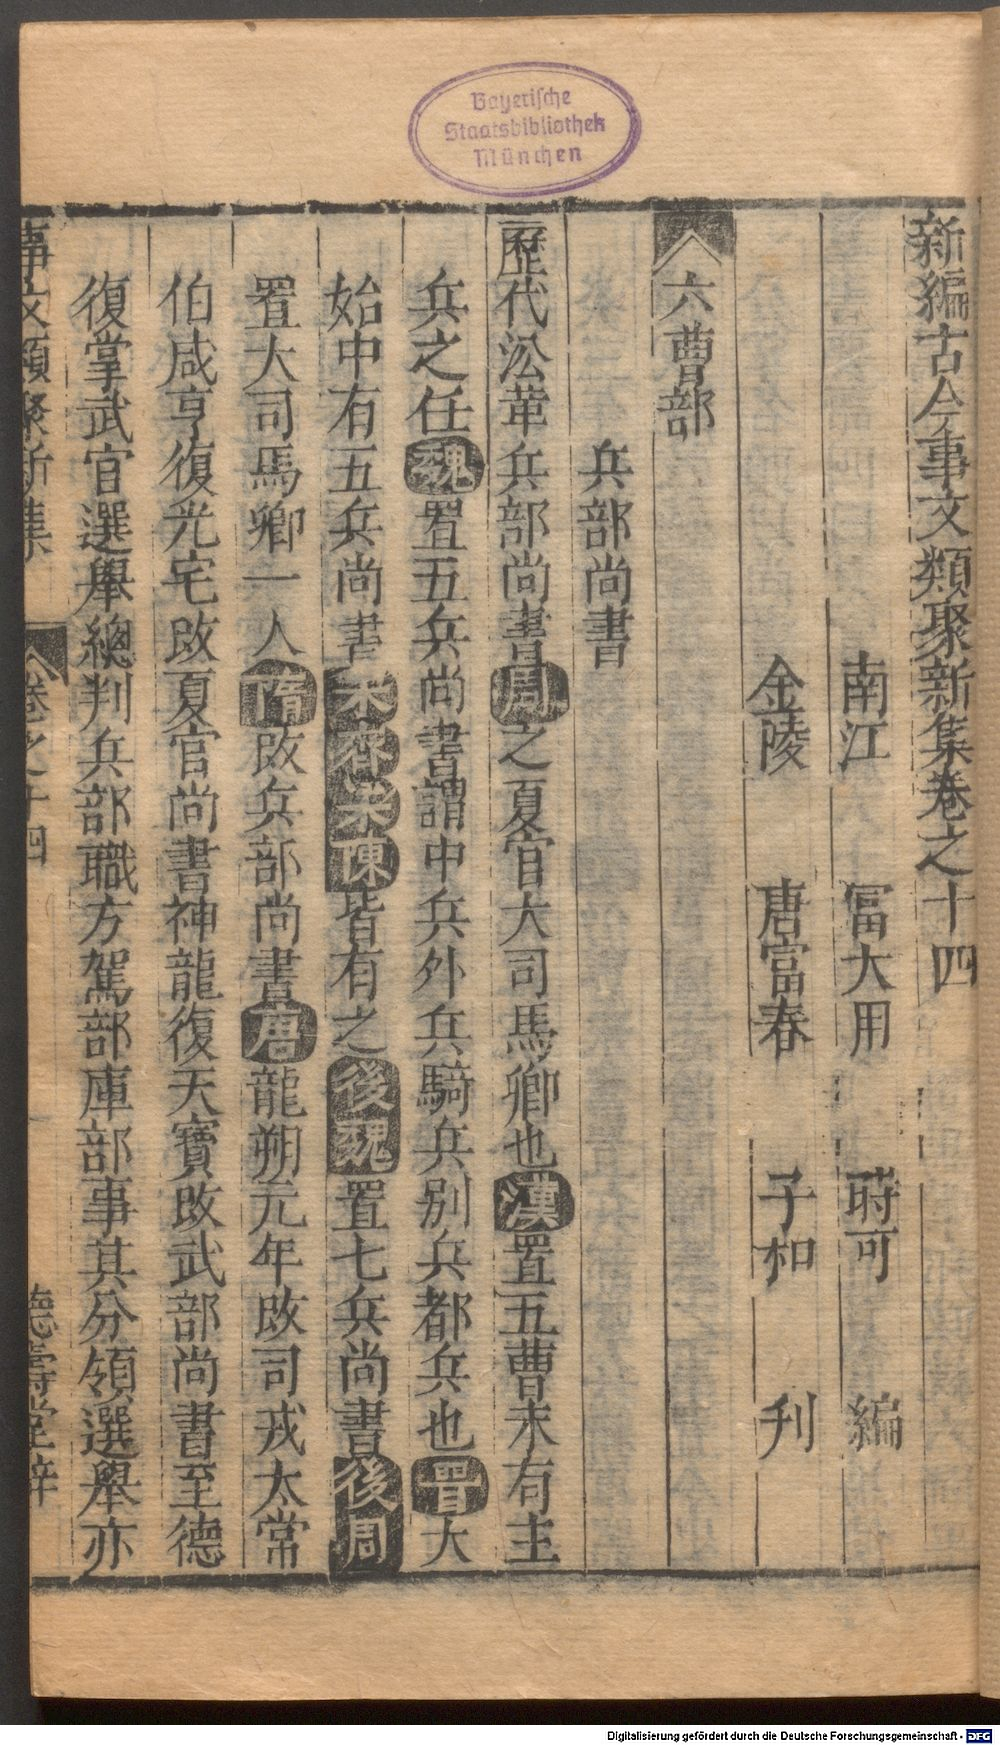 Bayerische
Staatsbibliothek
München
新編古今事文類聚新集卷之十四
南江 冨大用 時可 編
金陵 唐富春 子和 刋
六曹部
兵部尚書
歷代㳂革兵部尚書周之夏官大司馬卿也漢置五曹未有主
兵之任魏置五兵尚書謂中兵外兵騎兵别兵都兵也晋大
始中有五兵尚書宋齊梁陳皆有之後魏置七兵尚書後周
置大司馬卿一人隋改兵部尚書唐龍朔元年改司戎太常
伯咸亨復光宅改夏官尚書神龍復天寳改武部尚書至德
復掌武官選舉總判兵部職方駕部庫部事其分領選舉亦
事文類聚新集 卷之十四 德壽堂梓
Digitalisierung gefördert durch die Deutsche Forschungsgemeinschaft - DFG